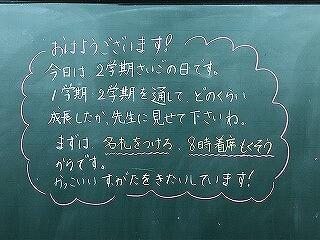 おはようございます!
今日は、2学期さいごの日です。
1学期、2学期を通して、どのくらい
成長したか、先生に見せて下さいね。
まずは、名札をつける、8時着席もくそう
からです。
かっこいいすがたをきたいしています!